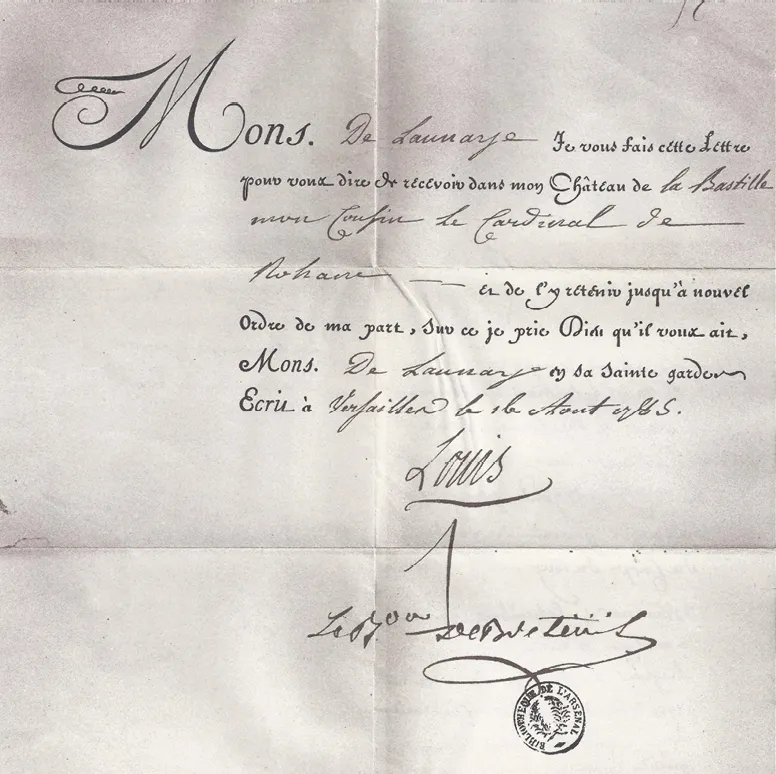 Mons. De Launaye Je vous fais cette Lettre
pour vous dire de recevoir dans mon Château de la Bastille
mon Cousin le Cardinal de
Rohan et de l'y retenir jusqu'à nouvel
Ordre de ma part, Sur ce je prie Dieu qu'il vous ait,
Mons. De Launaye en sa Sainte garde
Ecrit à Versailles le 16 Aout 1785.
Louis
Le Bon De Breteuil
BIBLIOTHEQUE DE L'ARSENAL